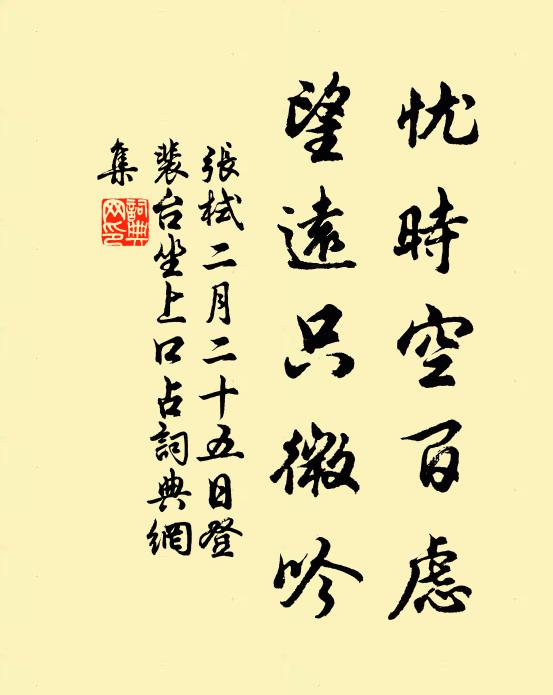 忧時空百慮
望遠只微吟
張栻二月二十五日登
裴台坐上口占詞典網
集
詞典
网印